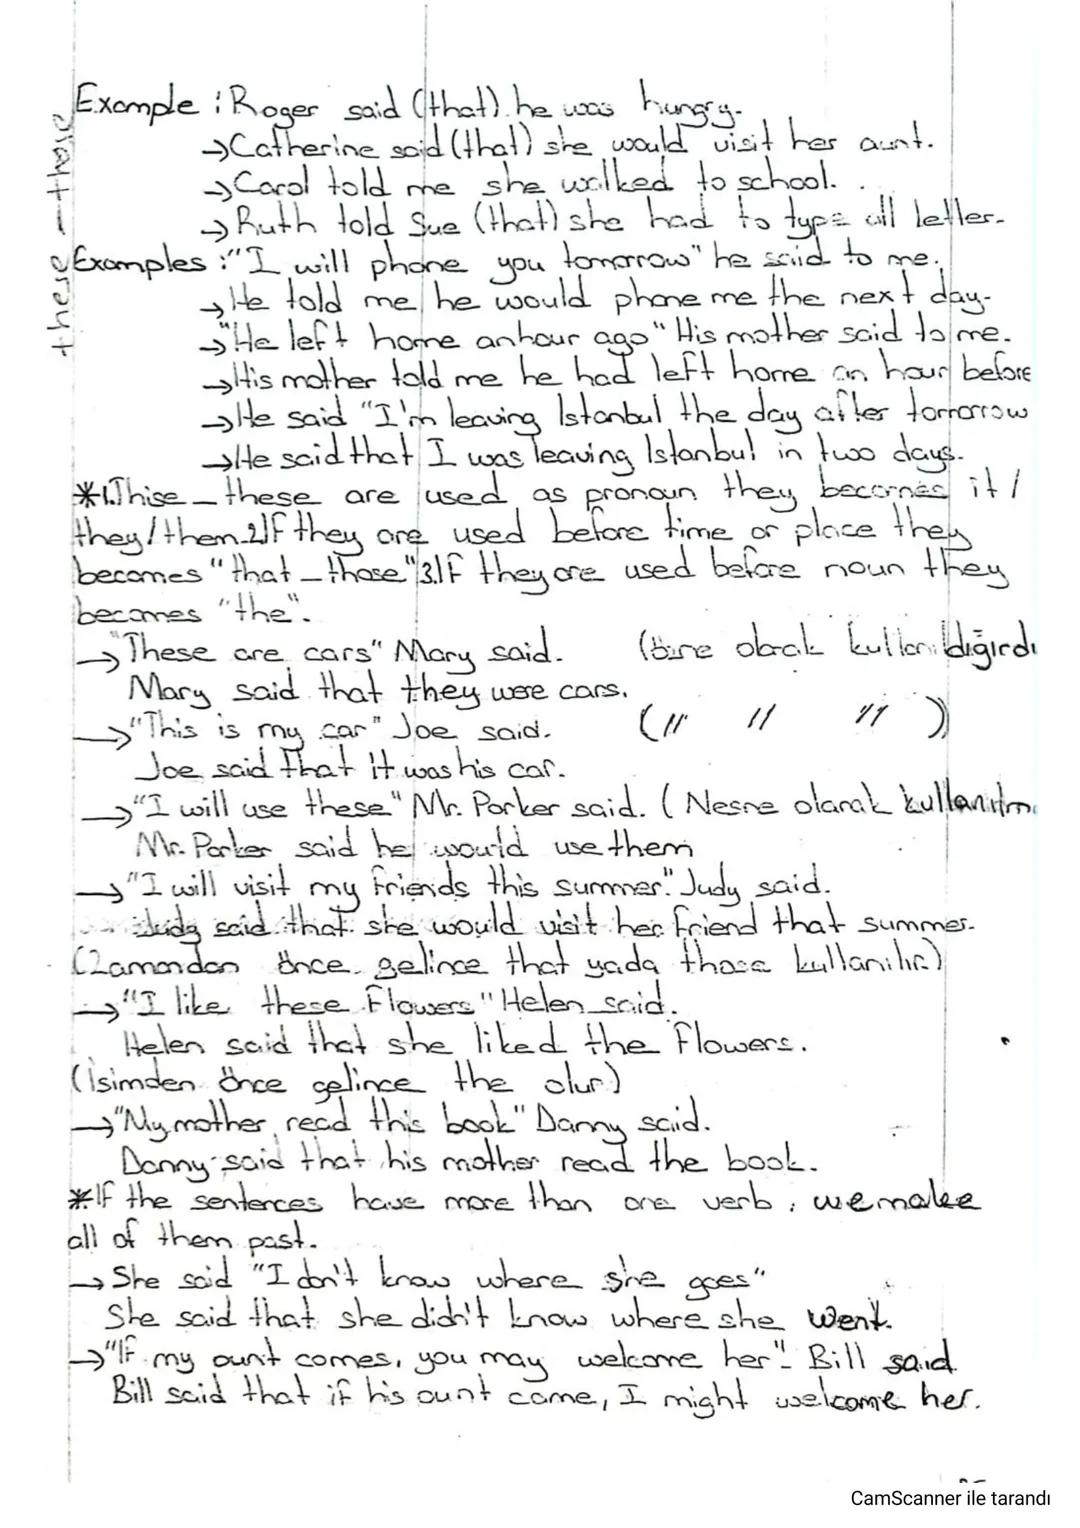 these - those
Example : Roger said (that) he was hungry.
→Catherine said (that) she would visit her aunt.
→Carol told me she walked to school.
→Ruth told Sue (that) she had to type all letter.
Examples : "I will phone you tomorrow" he said to me.
→He told me he would phone me the next day.
→"He left home anhour ago" His mother said to me.
→His mother told me he had left home an hour before
→He said "I'm leaving Istanbul the day after tomorrow
→He said that I was leaving Istanbul in two days.
*1.Thise _ these are used as pronoun they becomes it /
they / them.2.If they are used before time or place they
becomes "that _ those"3.If they are used before noun they
becomes "the".
→"These are cars" Mary said. (özne olarak kullanıldığırdı
Mary said that they were cars.
→"This is my car" Joe said. (" " ")
Joe said that it was his car.
→"I will use these" Mr. Parker said. ( Nesne olarak kullanılm
Mr. Parker said he would use them
→"I will visit my friends this summer." Judy said.
Judy said that she would visit her friend that summer.
(Zamandan önce gelince that yada those kullanılır.)
→"I like these flowers" Helen said.
Helen said that she liked the flowers.
(İsimden önce gelince the olur)
→"My mother read this book" Danny said.
Danny said that his mother read the book.
*If the sentences have more than one verb, we make
all of them past.
→She said "I don't know where she goes"
She said that she didn't know where she went.
→"If my aunt comes, you may welcome her" Bill said
Bill said that if his aunt came, I might welcome her.
CamScanner ile tarandı